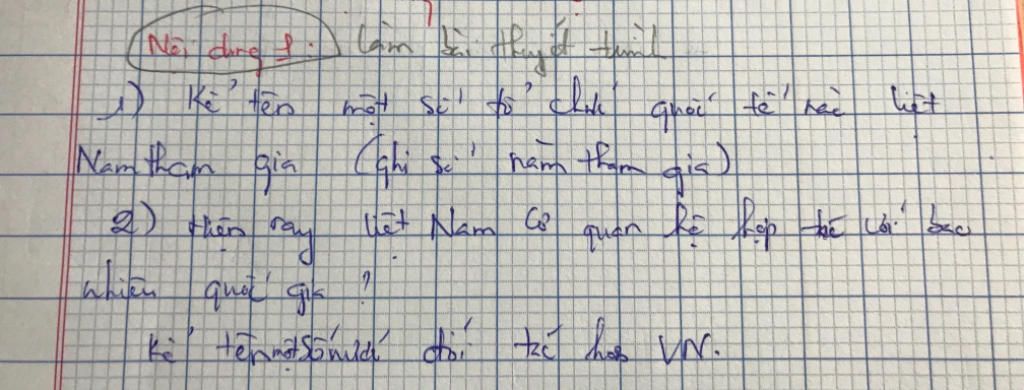 Nội dung 1. làm bài thuyết trình
1) Kể tên một số tổ chức quốc tế mà Việt
Nam tham gia (ghi số năm tham gia)
2) Hiện nay Việt Nam có quan hệ hợp tác với bao
nhiêu quốc gia?
Kể tên một số nước đối tác VN.